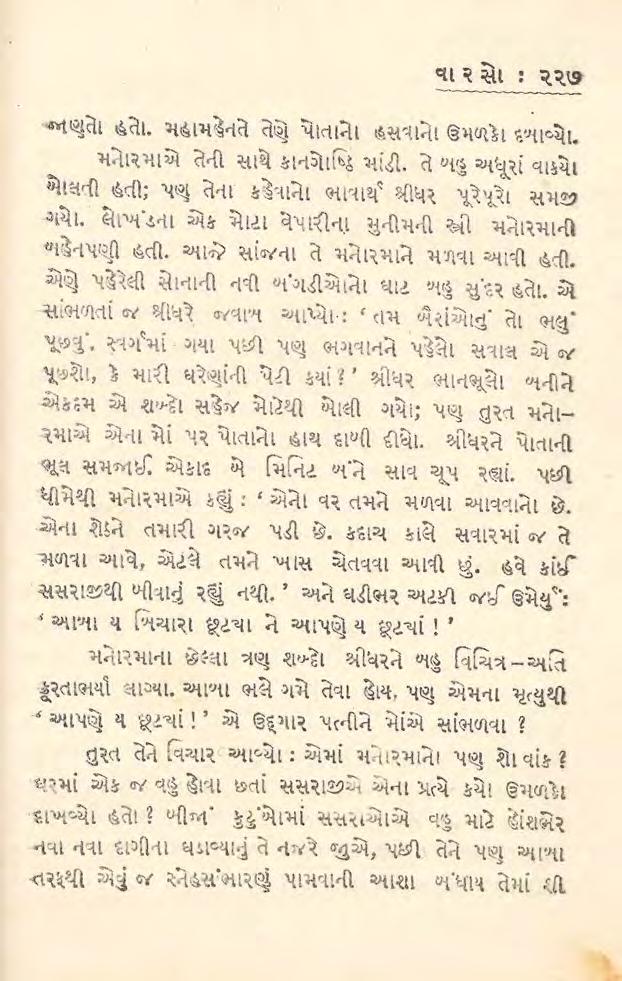 વા ર સો : ૨૨૭
જાણતો હતો. મહામહેનતે તેણે પોતાનો હસવાનો ઉમળકો દબાવ્યો.
મનોરમાએ તેની સાથે કાનગોષ્ઠિ માંડી. તે બહુ અધૂરાં વાક્યો
બોલતી હતી; પણ તેના કહેવાનો ભાવાર્થ શ્રીધર પૂરેપૂરો સમજી
ગયો. લોખંડના એક મોટા વેપારીના મુનીમની સ્ત્રી મનોરમાની
બહેનપણી હતી. આજે સાંજના તે મનોરમાને મળવા આવી હતી.
એણે પહેરેલી સોનાની નવી બંગડીઓનો ઘાટ બહુ સુંદર હતો. એ
સાંભળતાં જ શ્રીધરે જવાબ આપ્યો: ‘ તમ બૈરાંઓનું તો ભલું
પૂછવું. સ્વર્ગમાં ગયા પછી પણ ભગવાનને પહેલો સવાલ એ જ
પૂછશો, કે મારી ઘરેણાંની પેટી ક્યાં ? ’ શ્રીધર ભાનભૂલો બનીને
એકદમ એ શબ્દો સહેજ મોટેથી બોલી ગયો; પણ તુરત મનો–
રમાએ એના મોં પર પોતાનો હાથ દાબી દીધો. શ્રીધરને પોતાની
ભૂલ સમજાઈ. એકાદ બે મિનિટ બંને સાવ ચૂપ રહ્યાં. પછી
ધીમેથી મનોરમાએ કહ્યું : ‘ એનો વર તમને મળવા આવવાનો છે.
એના શેઠને તમારી ગરજ પડી છે. કદાચ કાલે સવારમાં જ તે
મળવા આવે, એટલે તમને ખાસ ચેતવવા આવી છું. હવે કાંઈ
સસરાજીથી બીવાનું રહ્યું નથી. ’ અને ઘડીભર અટકી જઈ ઉમેર્યું :
‘ આબા ય બિચારા છૂટ્યા ને આપણે ય છૂટ્યાં ! ’
મનોરમાના છેલ્લા ત્રણ શબ્દો શ્રીધરને બહુ વિચિત્ર – અતિ
ક્રૂરતાભર્યા લાગ્યા. આબા ભલે ગમે તેવા હોય, પણ એમના મૃત્યુથી
‘ આપણે ય છૂટ્યાં ! ’ એ ઉદ્દગાર પત્નીને મોંએ સાંભળવા ?
તુરત તેને વિચાર આવ્યો : એમાં મનોરમાનો પણ શો વાંક ?
ઘરમાં એક જ વહુ હોવા છતાં સસરાજીએ એના પ્રત્યે કયો ઉમળકો
દાખવ્યો હતો ? બીજાં કુટુંબોમાં સસરાઓએ વહુ માટે હોંશભેર
નવા નવા દાગીના ઘડાવ્યાનું તે નજરે જુએ, પછી તેને પણ આબા
તરફથી એવું જ સ્નેહસંભારણું પામવાની આશા બંધાય તેમાં શી